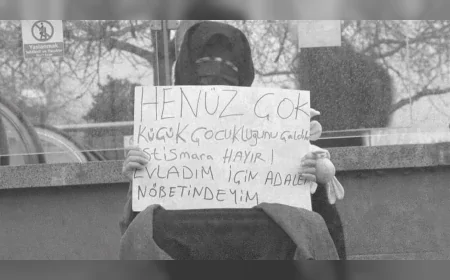 Yaslanmak
HENÜZ ÇOK
KÜÇÜK ÇOCUKLUĞUNU ÇALDI
İSTİSMARA HAYIR!
EVLADIM İÇİN ADALET
NÖBETİNDEYİM